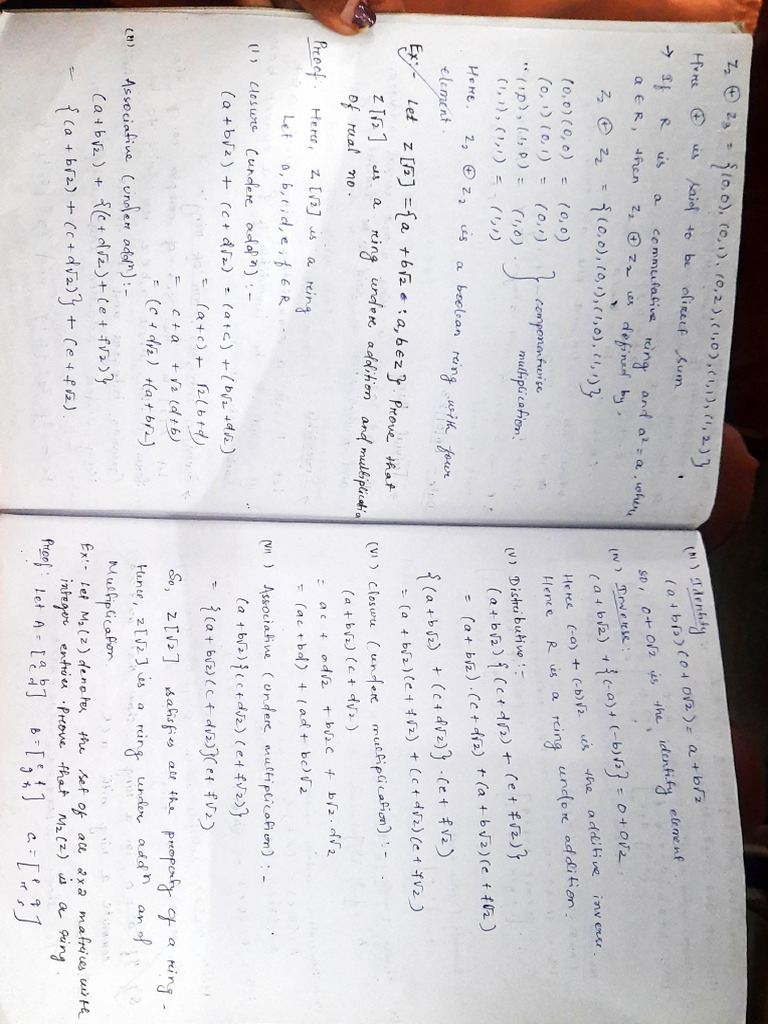 Z₂ ⊕ Z₃ = {(0,0), (0,1), (0,2), (1,0), (1,1), (1,2)}
Here ⊕ is said to be direct sum
→ If R is a commutative ring and a² = a, where
a ∈ R, then Z₂ ⊕ Z₂ is defined by,
Z₂ ⊕ Z₂ = {(0,0), (0,1), (1,0), (1,1)}
(0,0) (0,0) = (0,0)
(0,1) (0,1) = (0,1)
(1,0), (1,0) = (1,0)
(1,1), (1,1) = (1,1)
} componentwise
multiplication.
Here, Z₂ ⊕ Z₂ is a boolean ring with four
element
Ex:- Let Z[√2] = {a + b√2 : a, b ∈ Z} Prove that
Z[√2] is a ring under addition and multiplicatio
of real no.
Proof: Here, Z[√2] is a ring
Let a, b, c, d, e, f ∈ R
(I) Closure (under addⁿ) :-
(a+b√2) + (c+d√2) = (a+c) + (b√2 + d√2)
= (a+c) + √2(b+d)
= c+a + √2(d+b)
= (c+d√2) + (a+b√2)
(II) Associative (under addⁿ) :-
(a+b√2) + {(c+d√2) + (e+f√2)}
= {(a+b√2) + (c+d√2)} + (e+f√2)
(III) Identity:
(a+b√2) (0+0√2) = a+b√2
so, 0+0√2 is the identity element
(IV) Inverse:-
(a+b√2) + {(-a) + (-b)√2} = 0+0√2
Here (-a) + (-b)√2 is the additive inverse.
Hence R is a ring under addition.
(V) Distributive :-
(a+b√2) {(c+d√2) + (e+f√2)}
= (a+b√2).(c+d√2) + (a+b√2)(e+f√2)
{(a+b√2) + (c+d√2)}.(e+f√2)
= (a+b√2)(e+f√2) + (c+d√2)(e+f√2)
(VI) Closure (under multiplication) :-
(a+b√2) (c+d√2)
= ac + ad√2 + b√2c + b√2.d√2
= (ac+bd) + (ad+bc)√2
(VII) Associative (under multiplication) :-
(a+b√2) {(c+d√2) (e+f√2)}
= {(a+b√2) (c+d√2)} (e+f√2)
So, Z[√2] satisfies all the property of a ring.
Hence, Z[√2] is a ring under addⁿ and
Multiplication
Ex:- Let M₂(Z) denotes the set of all 2x2 matrices with
integer entries. Prove that M₂(Z) is a ring.
Proof: Let A = [a b
c d] B = [e f
g h] C = [p q
r s]